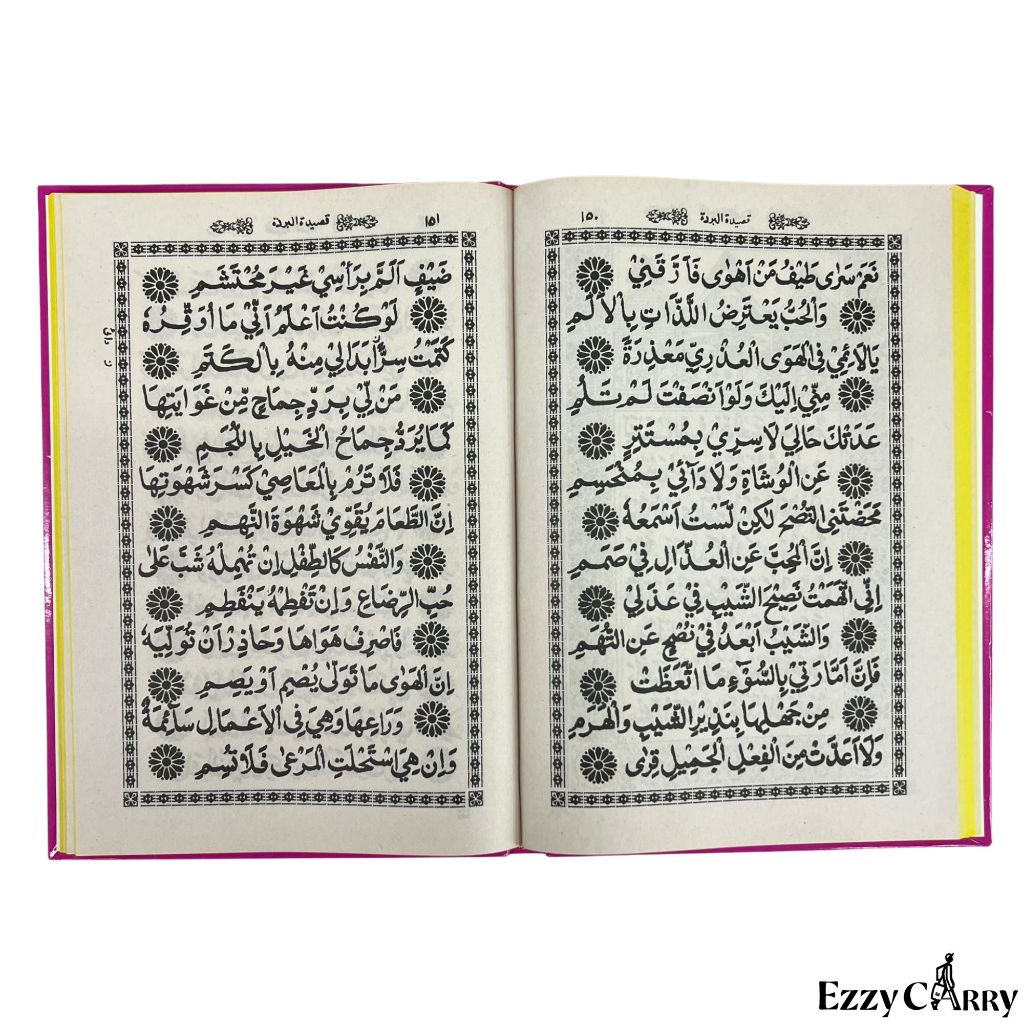 قصيدة البردة ١٥٠
نَعَمْ سَرٰى طَيْفُ مَنْ اَهْوٰى فَاَرَّقَنِيْ
وَالْحُبُّ يَعْتَرِضُ اللَّذَّاتِ بِالْاَلَمِ
يَالَائِمِيْ فِي الْهَوَى الْعُذْرِيِّ مَعْذِرَةً
مِنِّيْ اِلَيْكَ وَلَوْ اَنْصَفْتَ لَمْ تَلُمِ
عَدَتْكَ حَالِيَ لَا سِرِّيْ بِمُسْتَتِرٍ
عَنِ الْوُشَاةِ وَلَا دَآئِيْ بِمُنْحَسِمِ
مَحَضْتَنِي النُّصْحَ لٰكِنْ لَسْتُ اَسْمَعُهٗ
اِنَّ الْمُحِبَّ عَنِ الْعُذَّالِ فِيْ صَمَمِ
اِنِّي اتَّهَمْتُ نَصِيْحَ الشَّيْبِ فِيْ عَذَلِيْ
وَالشَّيْبُ اَبْعَدُ فِيْ نُصْحٍ عَنِ التُّهَمِ
فَاِنَّ اَمَّارَتِيْ بِالسُّوْٓءِ مَا اتَّعَظَتْ
مِنْ جَهْلِهَا بِنَذِيْرِ الشَّيْبِ وَالْهَرَمِ
وَلَا اَعَدَّتْ مِنَ الْفِعْلِ الْجَمِيْلِ قِرٰى
قصيدة البردة ١٥١
ضَيْفٍ اَلَمَّ بِرَاْسِيْ غَيْرَ مُحْتَشَمِ
لَوْ كُنْتُ اَعْلَمُ اَنِّيْ مَا اُوَقِّرُهٗ
كَتَمْتُ سِرًّا بَدَالِيْ مِنْهُ بِالْكَتَمِ
مَنْ لِّيْ بِرَدِّ جِمَاحٍ مِّنْ غَوَايَتِهَا
كَمَا يُرَدُّ جِمَاحُ الْخَيْلِ بِاللُّجَمِ
فَلَا تَرُمْ بِالْمَعَاصِيْ كَسْرَ شَهْوَتِهَا
اِنَّ الطَّعَامَ يُقَوِّيْ شَهْوَةَ النَّهِمِ
وَالنَّفْسُ كَالطِّفْلِ اِنْ تُهْمِلْهُ شَبَّ عَلٰى
حُبِّ الرَّضَاعِ وَاِنْ تَفْطِمْهُ يَنْفَطِمِ
فَاصْرِفْ هَوَاهَا وَحَاذِرْ اَنْ تُوَلِّيَهٗ
اِنَّ الْهَوٰى مَا تَوَلّٰى يُصْمِ اَوْ يَصِمِ
وَرَاعِهَا وَهِيَ فِي الْاَعْمَالِ سَآئِمَةٌ
وَاِنْ هِيَ اسْتَحْلَتِ الْمَرْعٰى فَلَا تُسِمِ
EZZY CARRY